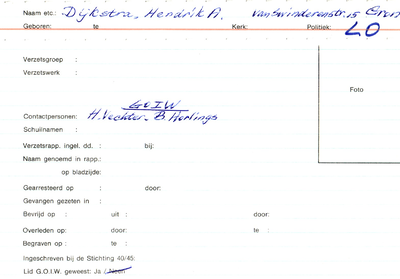 Naam etc.: Dijkstra, Hendrik A. van Swinderenstr. 15 Gron
Geboren: te Kerk: Politiek: LO
Verzetsgroep :
Verzetswerk :
Foto
GOIW
Contactpersonen: H. Vechter - B. Herlings
Schuilnamen :
Verzetsrapp. ingel. dd. : bij:
Naam genoemd in rapp.:
op bladzijde:
Gearresteerd op : door:
Gevangen gezeten in :
Bevrijd op : uit : door:
Overleden op: door: te :
Begraven op : te :
Ingeschreven bij de Stichting 40/45:
Lid G.O.I.W. geweest: Ja / Neen